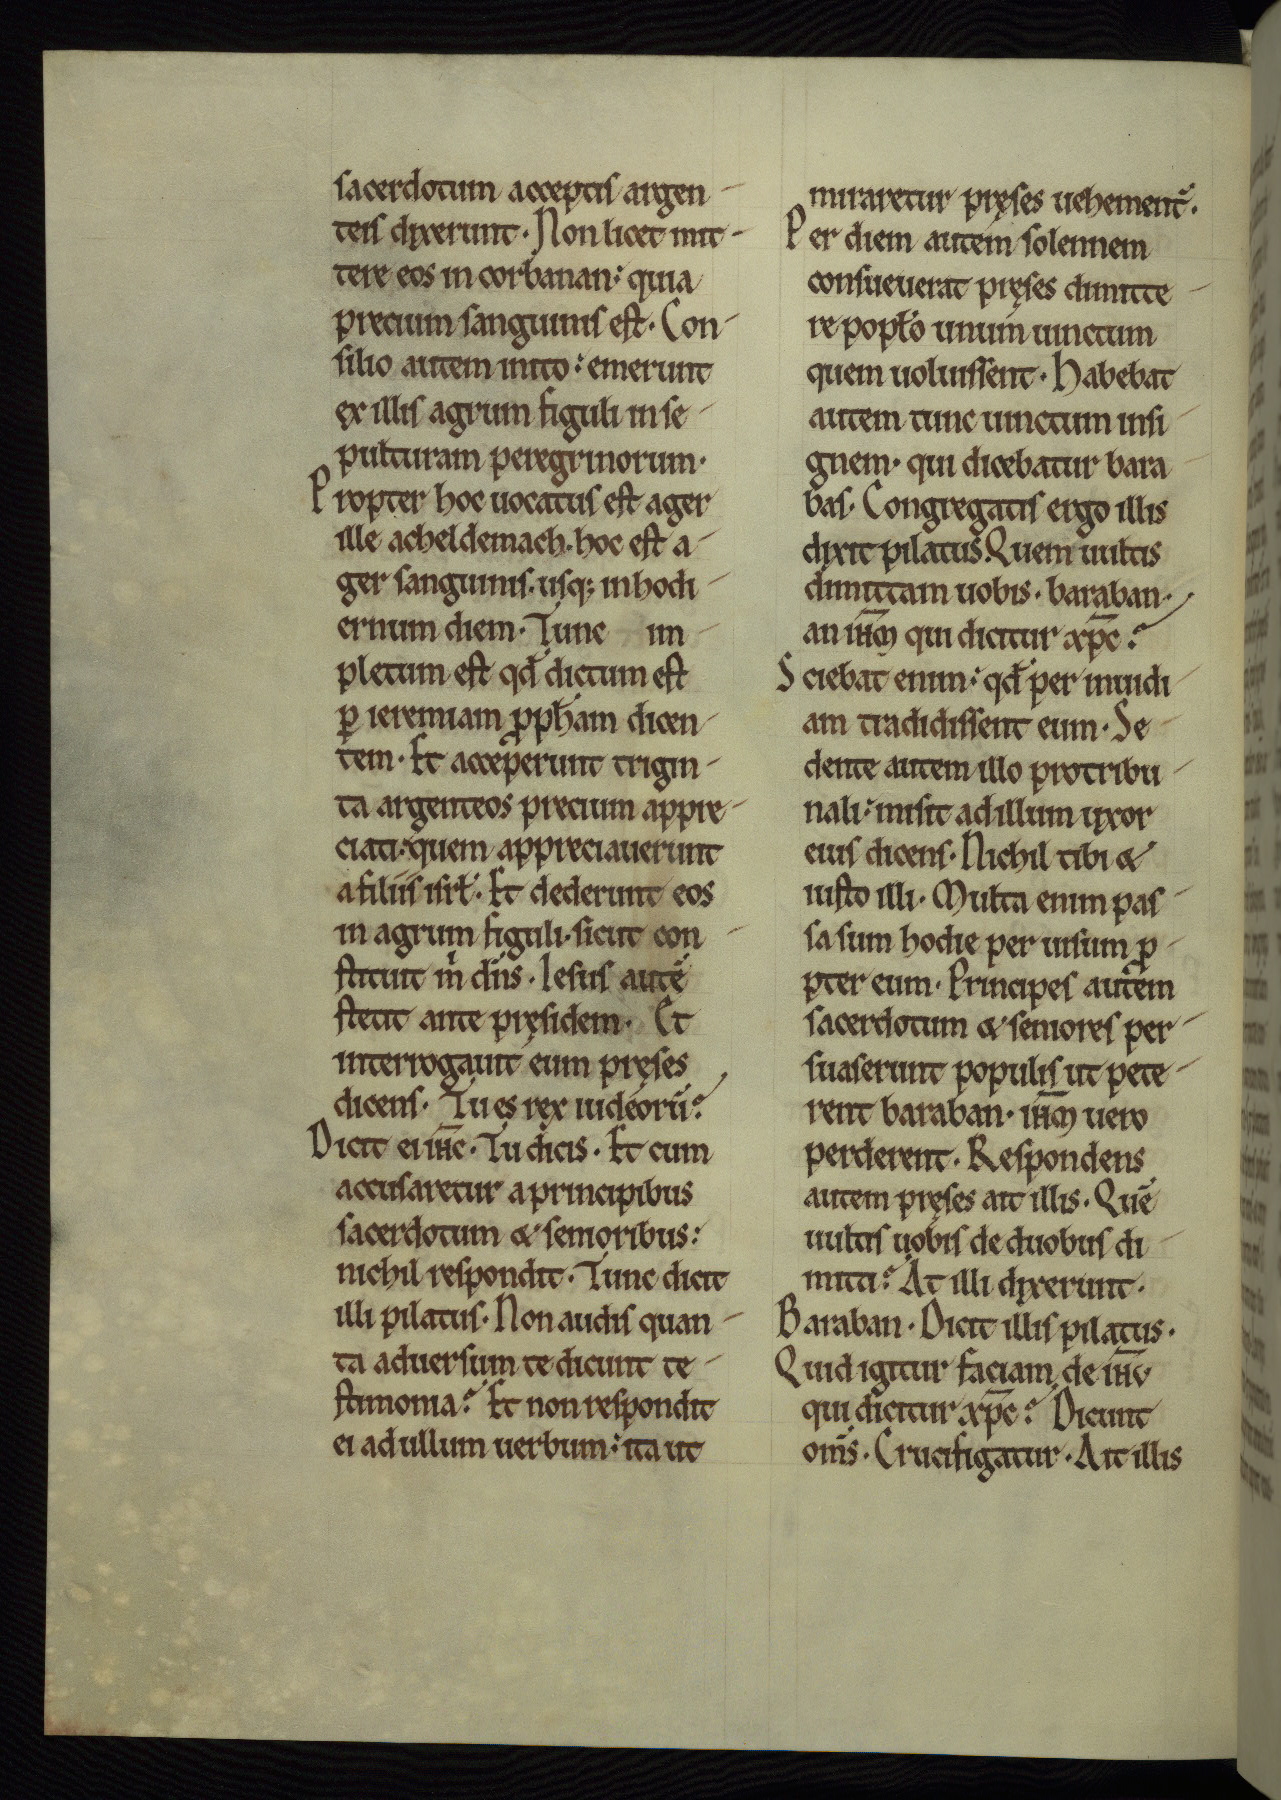 sacerdotum acceptis argen-
teis dixerunt. Non licet mit-
tere eos in corbanan: quia
precium sanguinis est. Con-
silio autem inito: emerunt
ex illis agrum figuli in se-
pulturam peregrinorum.
Propter hoc uocatus est ager
ille acheldemach. hoc est a-
ger sanguinis. usq; in hodi-
ernum diem. Tunc im-
pletum est qđ dictum est
ꝑ ieremiam ꝓpħam dicen-
tem. Et acceperunt trigin-
ta argenteos precium appre-
ciati: quem appreciauerunt
a filiis isrł. Et dederunt eos
in agrum figuli. sicut con-
stituit m̍ dn̄s. Iesus autē
stetit ante pręsidem. Et
interrogauit eum pręses
dicens. Tu es rex iudeorū?
Dicit ei iħc. Tu dicis. Et cum
accusaretur a principibus
sacerdotum & senioribus:
nichil respondit. Tunc dicit
illi pilatus. Non audis quan-
ta aduersum te dicunt te-
stimonia? Et non respondit
ei ad ullum uerbum: ita ut
miraretur pręses uehement̄.
Per diem autem solennem
consueuerat pręses dimitte-
re popło unum uinctum
quem uoluissent. Habebat
autem tunc uinctum insi-
gnem. qui dicebatur bara-
bas. Congregatis ergo illis
dixit pilatus. Quem uultis
dimittam uobis. baraban.
an iħm qui dicitur xp̄c?
Sciebat enim: qđ per inuidi-
am tradidissent eum. Se-
dente autem illo pro tribu-
nali: misit ad illum uxor
eius dicens. Nichil tibi &
iusto illi. Multa enim pas-
sa sum hodie per uisum ꝓ-
pter eum. Principes autem
sacerdotum & seniores per-
suaserunt populis ut pete-
rent baraban. iħm uero
perderent. Respondens
autem pręses ait illis. Quē
uultis uobis de duobus di-
miti? At illi dixerunt.
Baraban. Dicit illis pilatus.
Quid igitur faciam de iħu
qui dicitur xp̄c? Dicunt
om̄s. Crucifigatur. Ait illis